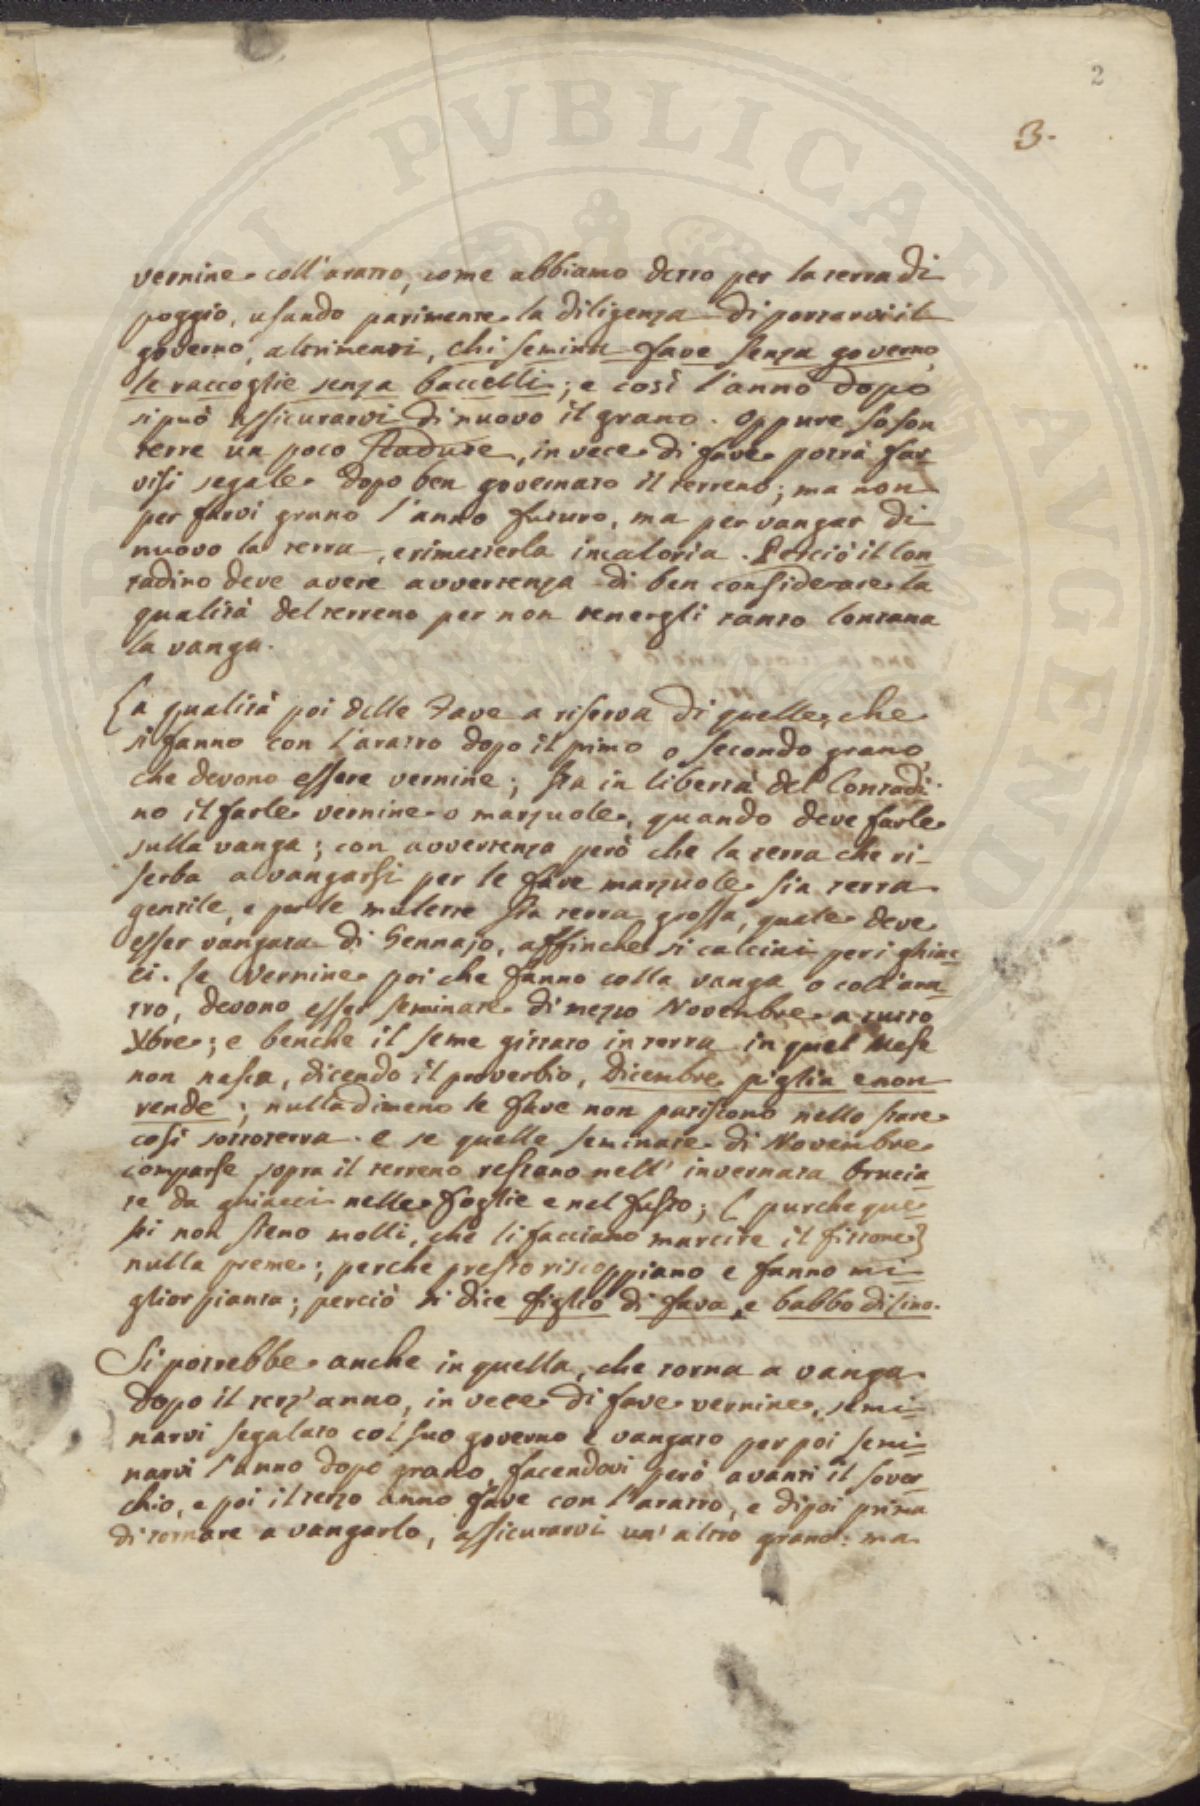 2
3.
vernine coll'aratro, come abbiamo detto per la terra di
poggio, usando parimente la diligenza di portarvi il
governo, altrimenti, chi semina fave senza governo,
le raccoglie senza baccelli; e così l'anno dopo
si può assicurarvi di nuovo il grano. Oppure se son
terre un poco stadure, in vece di fave potrà far
visi segale dopo ben governato il terreno; ma non
per farvi grano l'anno futuro, ma per vangar di
nuovo la terra, e rimetterla in caloria. Perciò il Con
tadino deve avere avvertenza di ben considerare la
qualità del terreno per non tenergli tanto lontana
la vanga.
La qualità poi delle Fave a riserva di quelle, che
si fanno con l'aratro dopo il primo o secondo grano,
che devono essere vernine; sta in libertà del Contadi-
no il farle vernine o marzuole, quando deve farle
sulla vanga; con avvertenza però che la terra che ri-
serba a vangarsi per le fave marzuole sia terra
gentile, e per le sia terra grossa, quale deve
esser vangata di Gennajo, affinche si calcini per i ghiac-
ci. Le Vernine poi che fanno colla vanga o coll'ara-
tro, devono esser seminate di mezzo Novembre a tutto
Xbre; e benche il seme gittato in terra in quel Mese
non nasca, dicendo il proverbio, Dicembre piglia e non
rende; nulladimeno le fave non patiscono nello stare
così sottoterra. e se quelle seminate di Novembre
comparse sopra il terreno restano nell'invernata brucia
te da ghiacci nelle foglie e nel fusto; (purche que-
sti non sieno molli, che li facciano marcire il fittone)
nulla preme; perche presto riscoppiano e fanno mi-
glior pianta; perciò si dice figlio di fava, e babbo di lino.
Si potrebbe anche in quella, che torna a vanga
dopo il terz'anno, in vece di fave vernine, semi-
narvi segalato col suo governo e vangato per poi semi-
narvi l'anno dopo grano, facendovi però avanti il sover
chio, e poi il terzo anno fave con l'aratro, e dipoi prima
di tornare a vangarlo, assicurarvi un'altro grano: ma
PUBLICAE
AUGEND